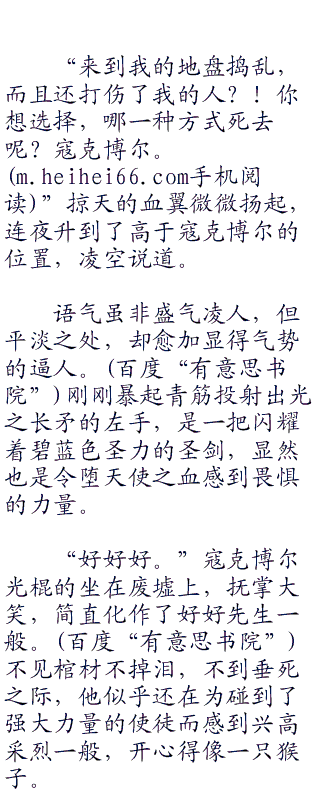 “来到我的地盘捣乱，
而且还打伤了我的人？！你
想选择，哪一种方式死去
呢？寇克博尔。
(m.heihei66.com手机阅
读)”掠天的血翼微微扬起，
连夜升到了高于寇克博尔的
位置，凌空说道。
语气虽非盛气凌人，但
平淡之处，却愈加显得气势
的逼人。(百度“有意思书
院”)刚刚暴起青筋投射出光
之长矛的左手，是一把闪耀
着碧蓝色圣力的圣剑，显然
也是令堕天使之血感到畏惧
的力量。
“好好好。”寇克博尔
光棍的坐在废墟上，抚掌大
笑，简直化作了好好先生一
般。(百度“有意思书院”)
不见棺材不掉泪，不到垂死
之际，他似乎还在为碰到了
强大力量的使徒而感到兴高
采烈一般，开心得像一只猴
子。